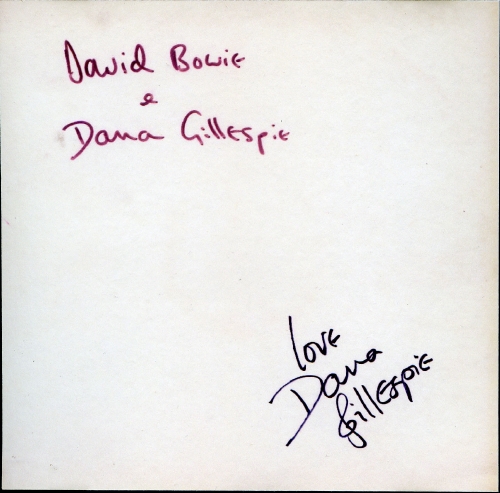 David Bowie
&
Dana Gillespie
love
Dana
Gillespie